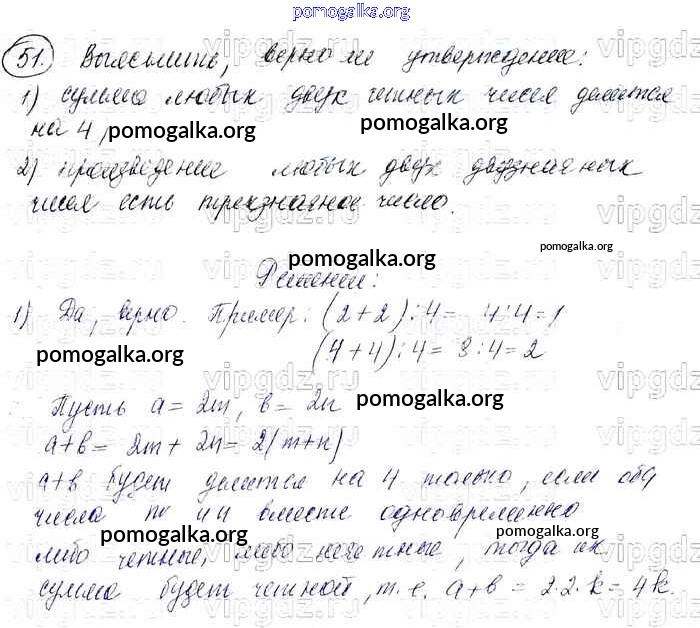 pomogalka.org
51. Выяснить, верно ли утверждение:
1) сумма любых двух четных чисел делится
на 4,
pomogalka.org pomogalka.org
2) произведение любых двух двузначных
чисел есть трехзначное число.
pomogalka.org
pomogalka.org
Решение:
1) Да, верно. Пример: (2+2):4= 4:4=1
pomogalka.org
(4+4):4= 8:4=2
Пусть a= 2m, в= 2n pomogalka.org
a+в= 2m+ 2n= 2(m+n)
a+в будет делится на 4 только, если оба
числа m и n вместе одновременно
pomogalka.org pomogalka.org
либо четные, либо нечетные, тогда их
сумма будет четной, т.е. a+в= 2.2.k= 4k